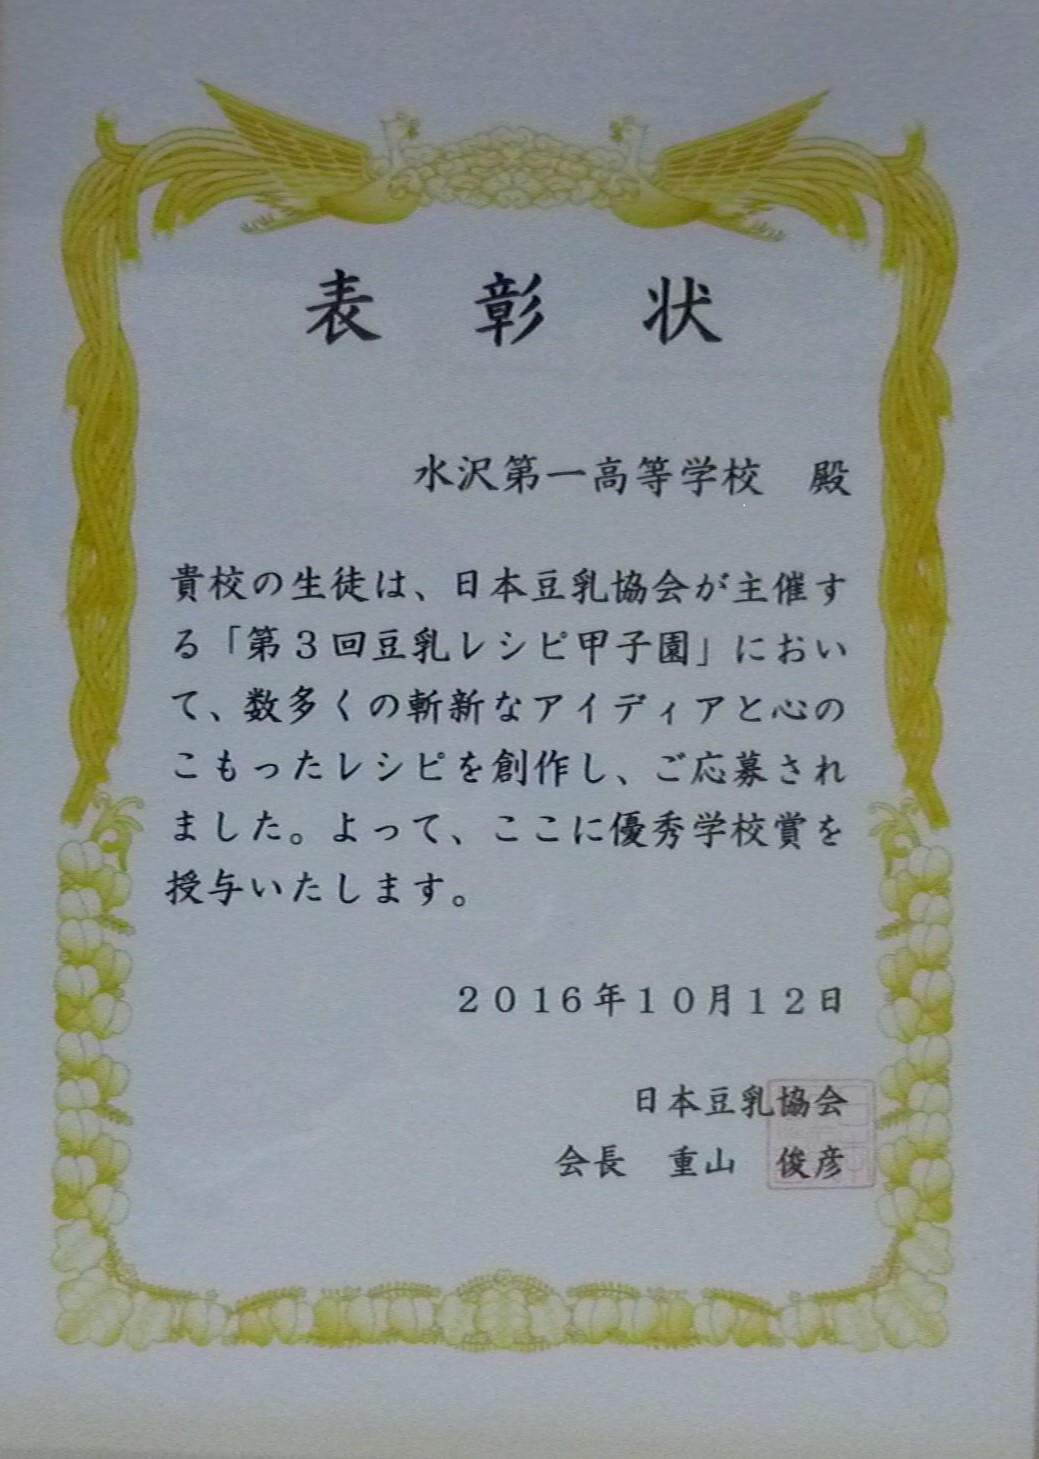 表彰状
水沢第一高等学校　殿
貴校の生徒は、日本豆乳協会が主催す
る「第３回豆乳レシピ甲子園」におい
て、数多くの斬新なアイディアと心の
こもったレシピを創作し、ご応募され
ました。よって、ここに優秀学校賞を
授与いたします。
２０１６年１０月１２日
日本豆乳協会
会長　重山　俊彦